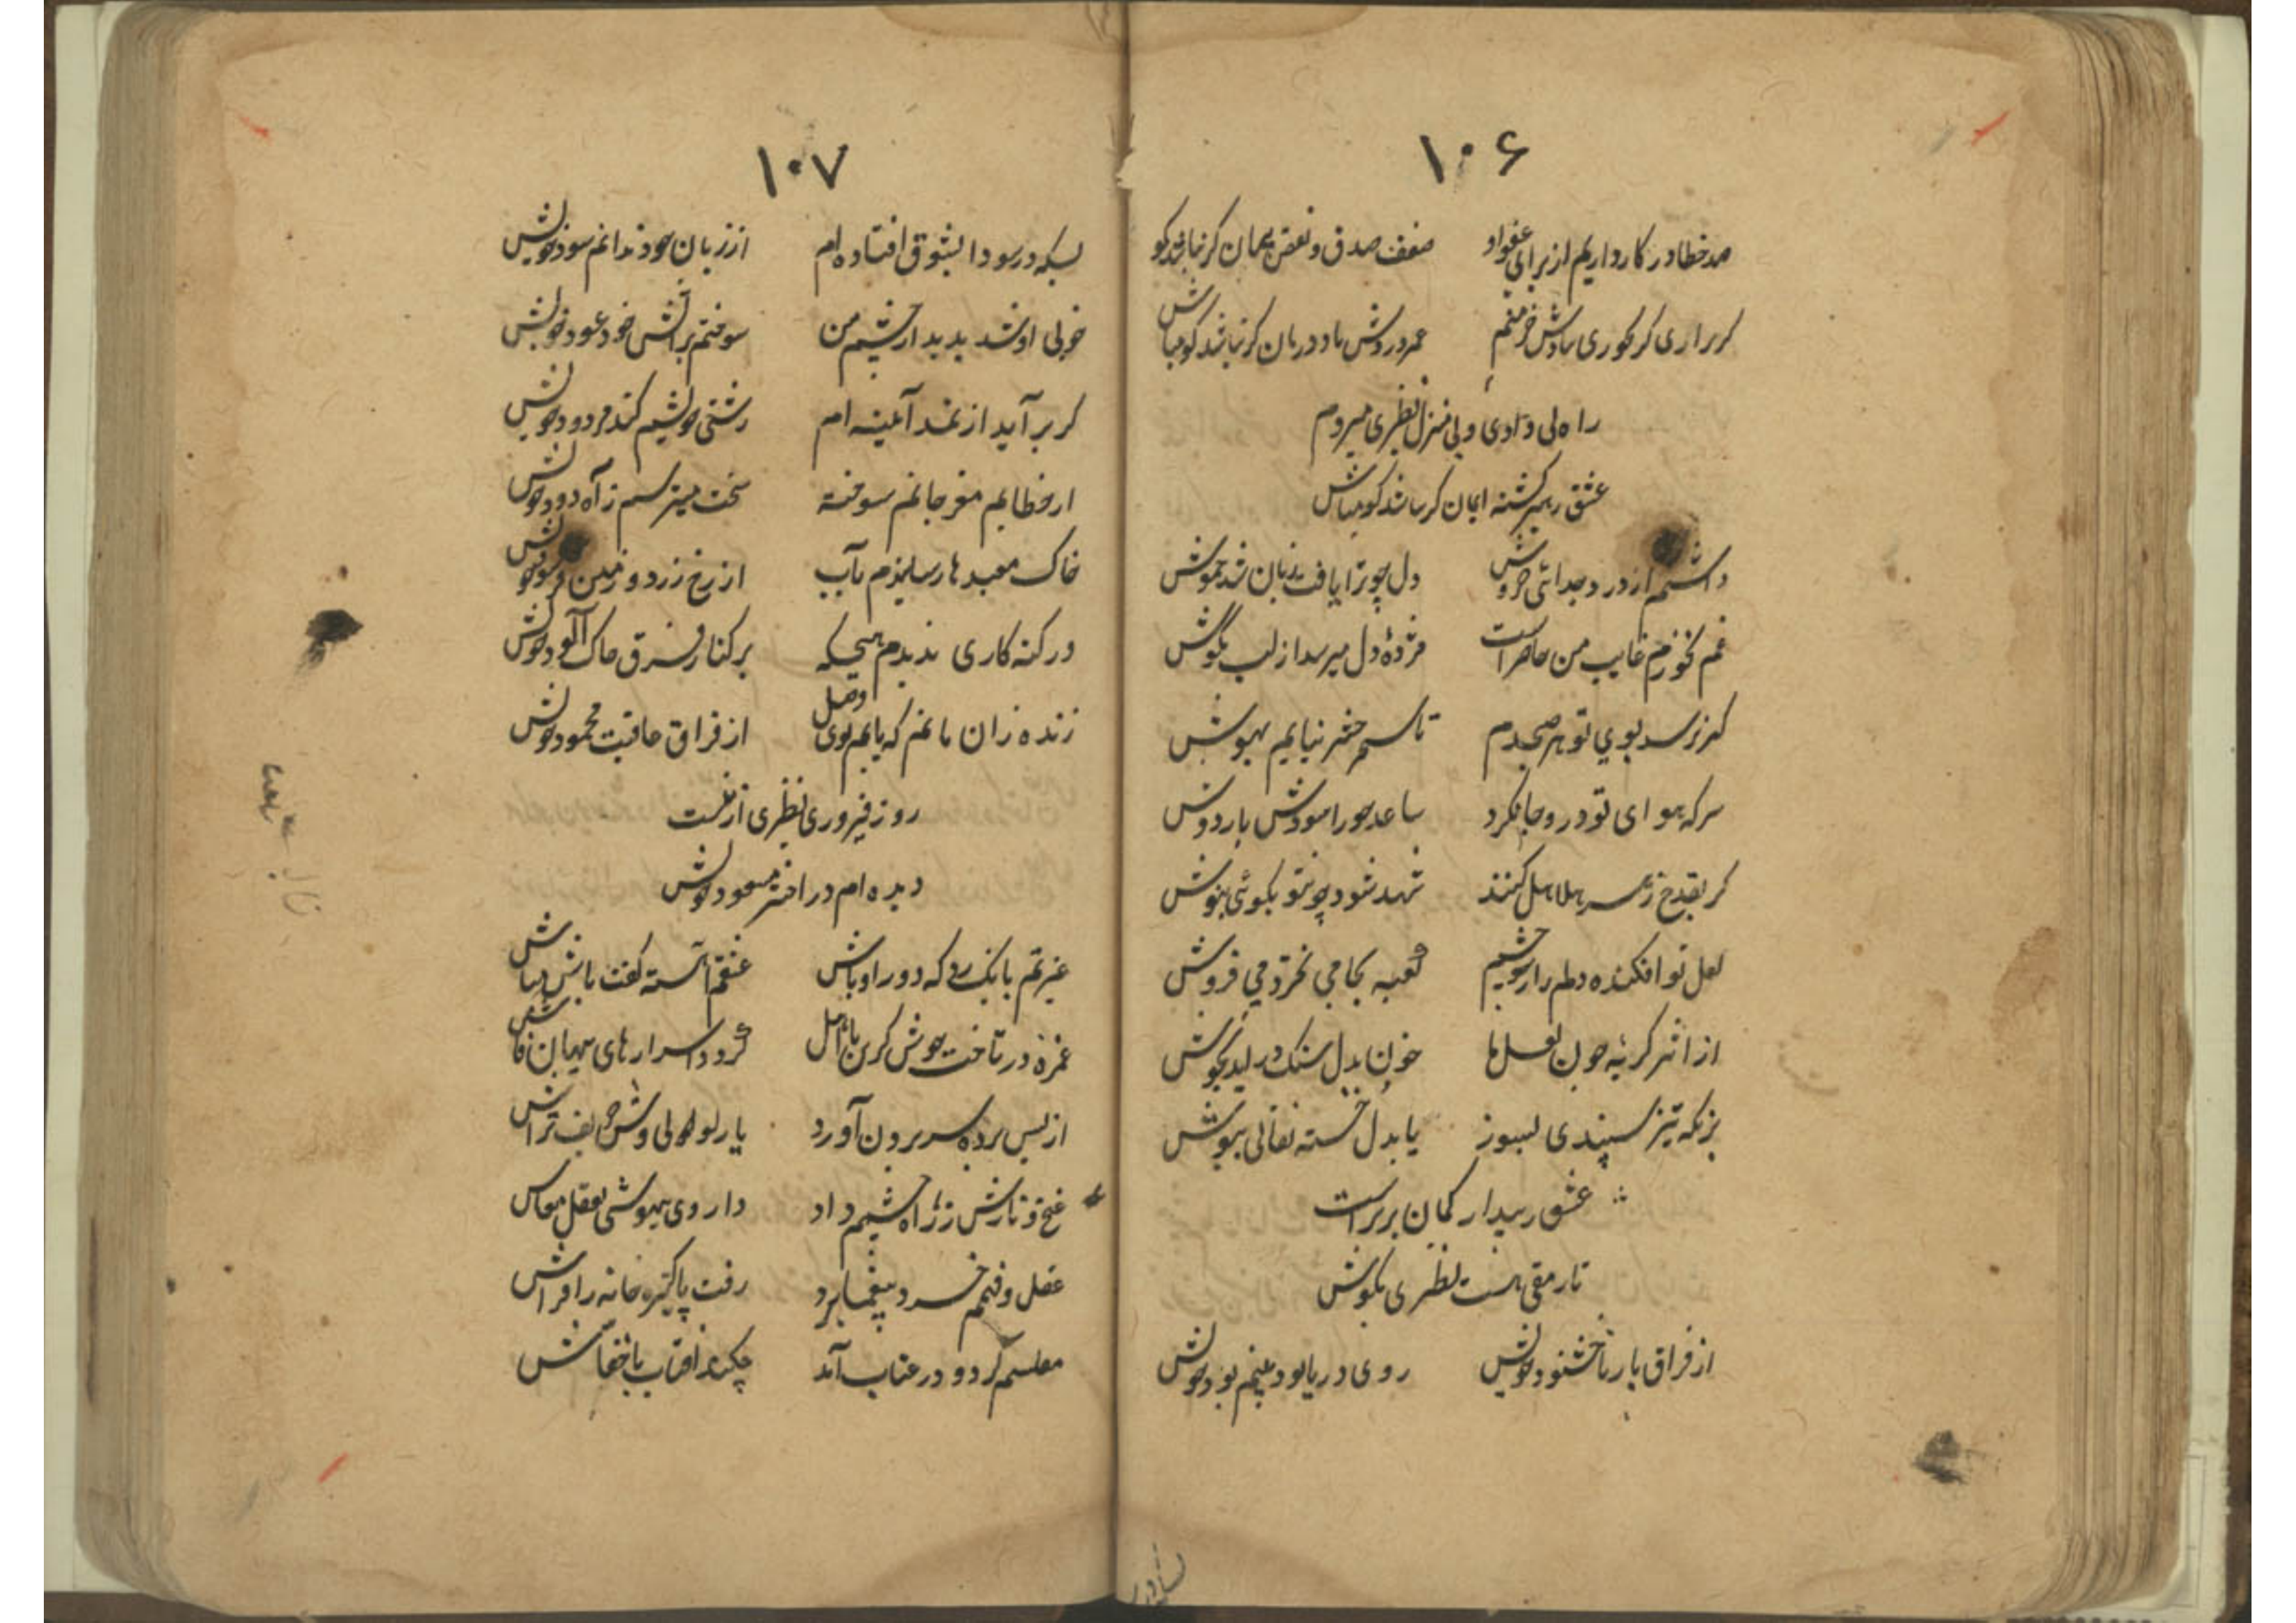 ۱۰۶
صد خطا در کار داریم از برای عفو او ضعف صدق و نقص پیمان کر نباشد کو
کر براری کر کوری بادش خرمنم عمر دروش باد درمان کر نباشد کو مباش
راه بی وادی و بی منزل نظیری میروم
عشق رهبر کشته ایمان کر نباشد کو مباش
داشتم از درد جدائی خروش دل چو ترا یافت زبان شد خموش
غم نخورم غایب من حاضر است مژدهٔ دل میرسد از لب بگوش
کر نرسد بوی تو هر صبحدم تا سر حشر نیایم بهوش
سر که هوای تو درو جا نکرد ساعد حورا مبودش بار دوش
کر بقدح زهر هلاهل کنند شهد شود چو تو بکوئی بنوش
لعل تو افکنده دلم را ز چشم کعبه بجامی نخرد می فروش
از اثر کریه چون لعل ما خون بدل سنک در آید بجوش
بز نکه تیز سپندی بسوز یا بدل خسته نقابی بپوش
عشق رسیدار کمان برتر است
تا رمقی هست نظیری بکوش
از فراق یار ناخشنود خویش روی در یابود بینم بود خویش
۱۰۷
بسکه در سودا بشوق افتاده ام از زیان خود ندانم سود خویش
خوبی او شد پدید از چشم من سوختم بر آتش خود عود خویش
کر بر آید از نمد آئینه ام زشتی خویشم کند مردود خویش
از خطایم مغز جانم سوخته سخت میترسم ز آه دود خویش
خاک معبدها رسانیدم بآب از رخ زرد و زمین فرسود خویش
در کنه کاری ندیدم هیچکه بر کنار فرق خاک آلود خویش
زنده زان مانم که یابم بوی وصل از فراق عاقبت محمود خویش
روز فیروزی نظیری از غمست
دیده ام در اختر مسعود خویش
غیرتم بانک زد که دور او باش عشقم آهسته کفت باش مباش
غمزه در تاخت هوش کرن تأمل کرد اسرارهای پنهان فاش
از پس پرده سر برون آورد یار لولی وش حریف تراش
غنج و نازش ز راه چشمم داد داروی بیهوشی بعقل معاش
عقل و فهم خرد بیغما برد رفت پاکیزه خانه را فراش
مفلسم کرد و در عتاب آمد چکند آفتاب با خفاش